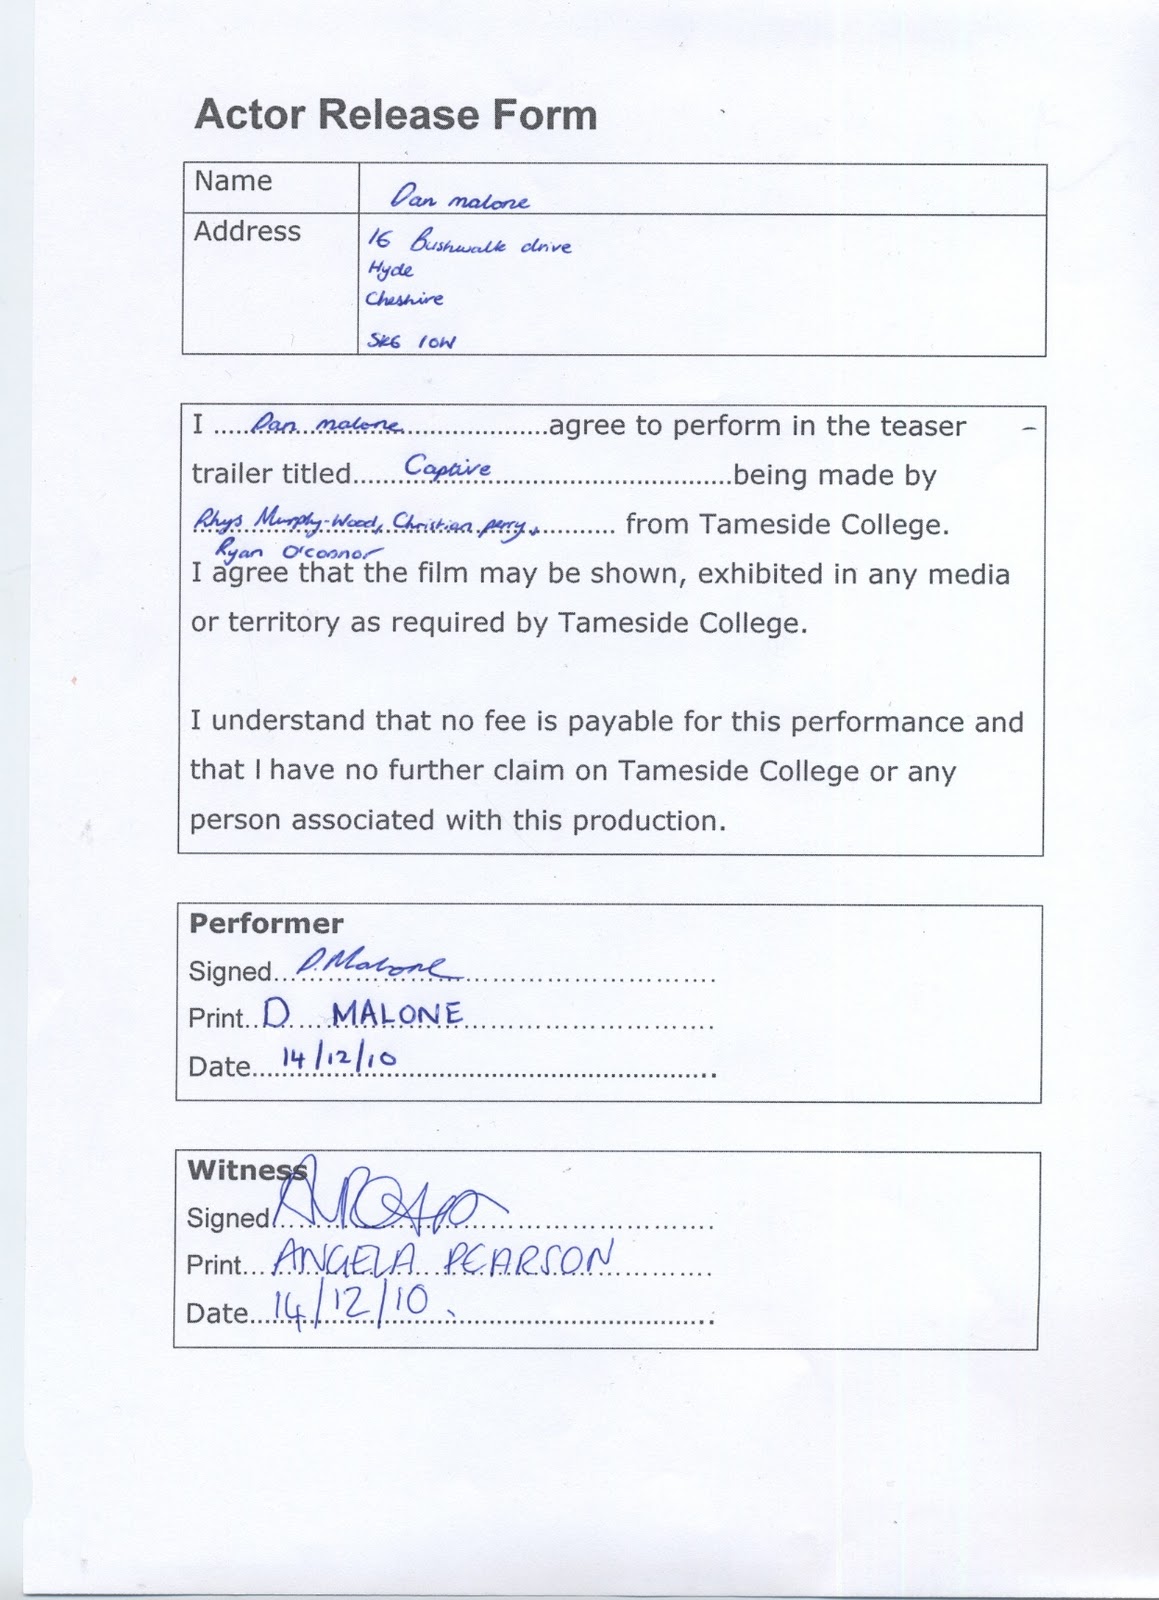 Actor Release Form
Name Dan malone
Address 16 Bushwalk drive
Hyde
Cheshire
SK6 10W
I .....Dan malone.........................agree to perform in the teaser
trailer titled......Captive...............................being made by
Rhys Murphy-Wood, Christian perry, .......... from Tameside College.
Ryan O'connor
I agree that the film may be shown, exhibited in any media
or territory as required by Tameside College.
I understand that no fee is payable for this performance and
that I have no further claim on Tameside College or any
person associated with this production.
Performer
Signed...D.Malone..............................
Print..D MALONE..............................
Date....14/12/10..............................
Witness
Signed..............................
Print...ANGELA PEARSON............
Date...14/12/10..............................